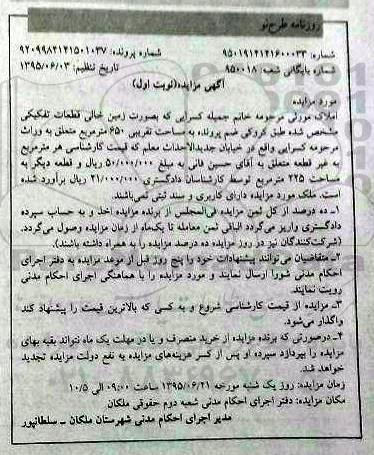 روزنامه طرح نو
شماره: ۹۵۰۱۹۱۴۱۴۱۶۰۰۰۳۳
شماره پرونده: ۹۲۰۹۹۸۴۱۴۱۵۰۱۰۳۷
شماره بایگانی شعبه: ۹۵۰۰۱۸
تاریخ تنظیم: ۱۳۹۵/۰۶/۰۳
آگهی مزایده(نوبت اول)
مورد مزایده
املاک موروثی مرحومه خانم جمیله کسرایی که بصورت زمین خالی قطعات تفکیکی
مشخص شده طبق کروکی ضم پرونده به مساحت تقریبی ۶۵۰ مترمربع متعلق به وراث
مرحومه کسرایی واقع در خیابان جدیدالاحداث معلم که قیمت کارشناسی هر مترمربع
به غیر قطعه متعلق به آقای حسین فانی به مبلغ ۵۰/۰۰۰/۰۰۰ ریال و قطعه دیگر به
مساحت ۲۲۵ مترمربع توسط کارشناسان دادگستری ۲۱/۰۰۰/۰۰۰ ریال برآورد شده
است. ملک مورد مزایده دارای کاربری و سند ثبتی نمی‌باشند.
۱ـ ده درصد از کل ثمن مزایده فی‌المجلس از برنده مزایده اخذ و به حساب سپرده
دادگستری واریز می‌گردد الباقی ثمن معامله تا یک‌ماه از زمان مزایده وصول می‌گردد.
(شرکت‌کنندگان نیز در روز مزایده ده درصد مزایده را به همراه داشته باشند).
۲ـ متقاضیان می‌توانند پیشنهادات خود را پنج روز قبل از موعد مزایده به دفتر اجرای
احکام مدنی شورا ارسال نمایند و مورد مزایده را با هماهنگی اجرای احکام مدنی
رویت نمایند.
۳ـ مزایده از قیمت کارشناسی شروع و به کسی که بالاترین قیمت را پیشنهاد کند
واگذار می‌شود.
۴ـ درصورتی که برنده مزایده از خرید منصرف و یا در مهلت یک ماه نتواند بقیه بهای
مزایده را بپردازد سپرده او پس از کسر هزینه‌های مزایده به نفع دولت مزایده تجدید
خواهد شد.
زمان مزایده: روز یک شنبه مورخه ۱۳۹۵/۰۶/۲۱ ساعت ۰۹:۰۰ الی ۱۰/۵
مکان مزایده: دفتر اجرای احکام مدنی شعبه دوم حقوقی ملکان
مدیر اجرای احکام مدنی شهرستان ملکان ـ سلطانپور